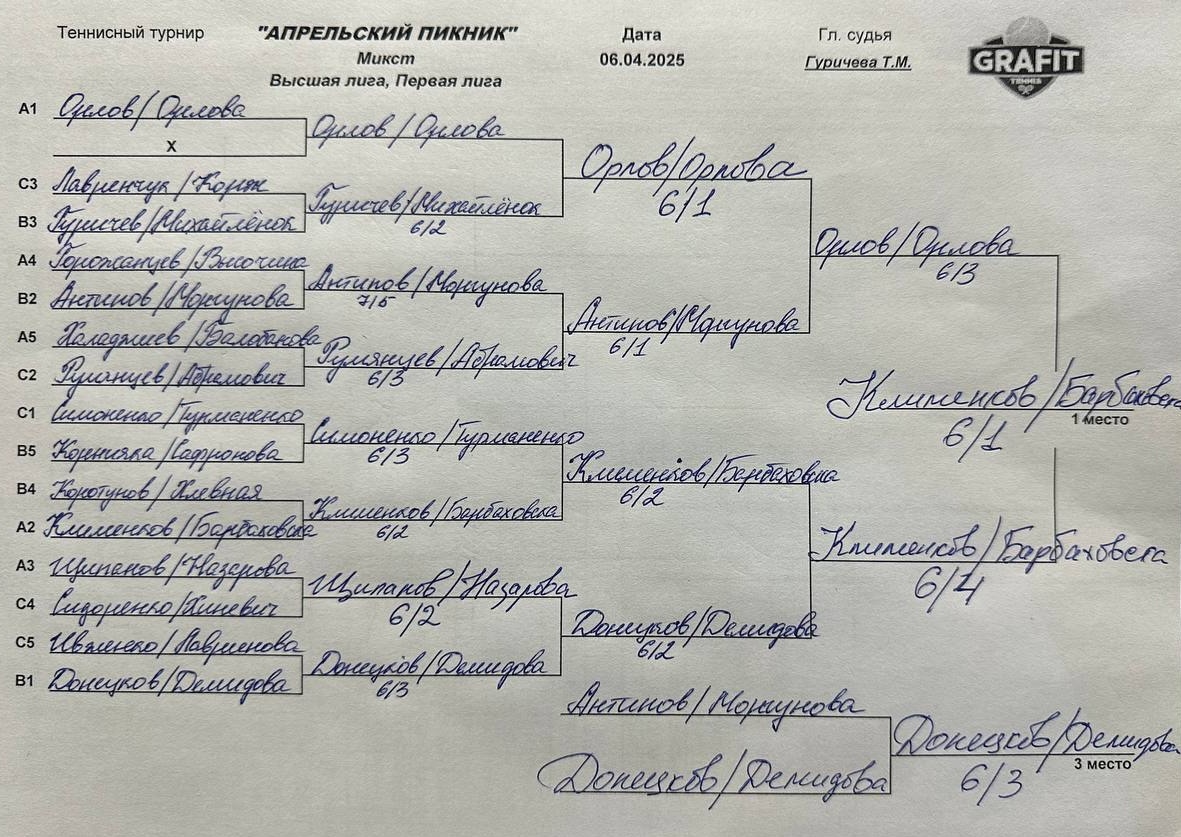 Теннисный турнир
"АПРЕЛЬСКИЙ ПИКНИК"
Микст
Высшая лига, Первая лига
Дата
06.04.2025
Гл. судья
Гуричева Т.М.
GRAFIT
TENNIS
A1 Орлов/Орлова
X
C3 Лавренчук/Корж
B3 Гуричев/Михайлёнок
A4 Горожанцев/Высочина
B2 Антипов/Моргунова
A5 Халаджиев/Балабанова
C2 Румянцев/Абрамович
C1 Симоненко/Гурманенко
B5 Корнияка/Сафронова
B4 Коротунов/Хлевная
A2 Клименков/Барбаховска
A3 Щипанов/Назарова
C4 Сидоренко/Хиневич
C5 Ивженко/Лавренова
B1 Донецков/Демидова
Орлов/Орлова
Гуричев/Михайлёнок
6/2
Антипов/Моргунова
7/5
Румянцев/Абрамович
6/3
Симоненко/Гурманенко
6/3
Клименков/Барбаховска
6/2
Щипанов/Назарова
6/2
Донецков/Демидова
6/3
Орлов/Орлова
6/1
Антипов/Моргунова
6/1
Клименков/Барбаховска
6/2
Донецков/Демидова
6/2
Орлов/Орлова
6/3
Клименков/Барбаховска
6/4
Клименков/Барбаховска
1 место
6/1
Антипов/Моргунова
Донецков/Демидова
Донецков/Демидова
3 место
6/3